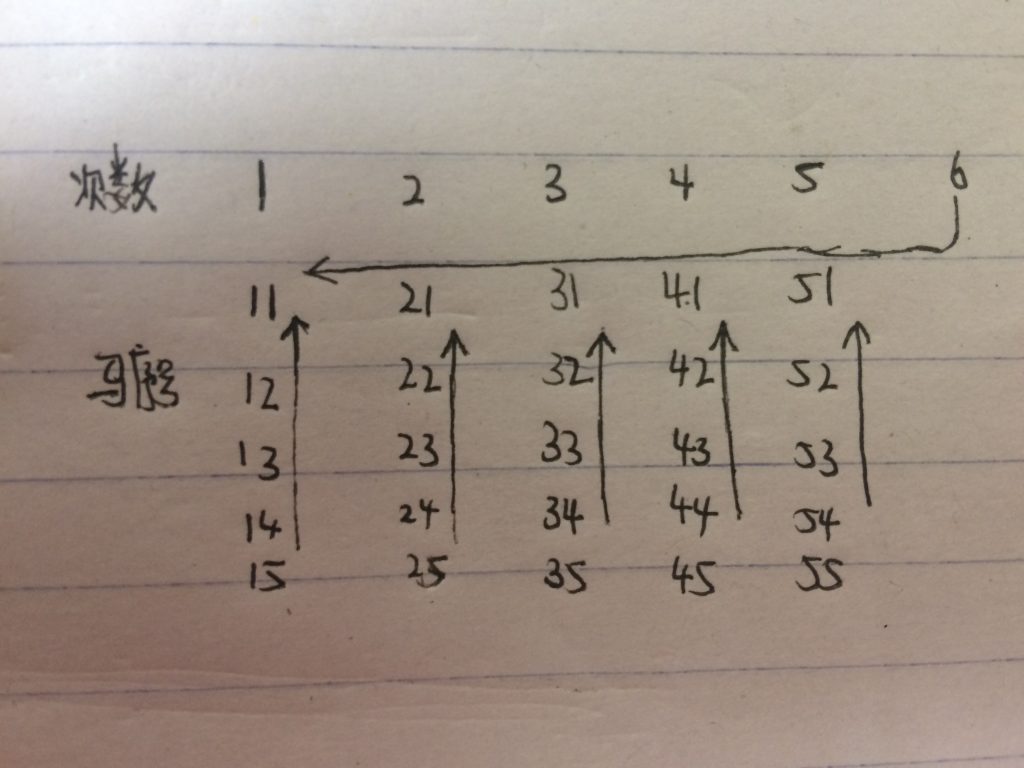 次数 1 2 3 4 5 6
11 21 31 41 51
马序号 12 22 32 42 52
13 23 33 43 53
14 24 34 44 54
15 25 35 45 55